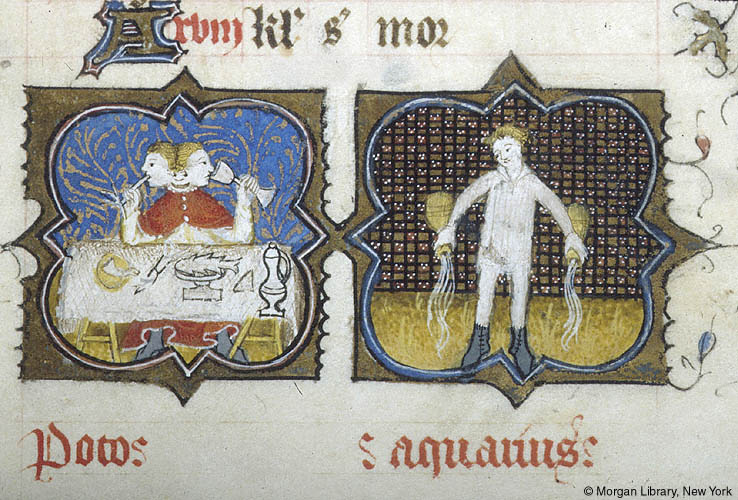 Arvuij kl' s' mor
Potos
s aquarius
© Morgan Library, New York